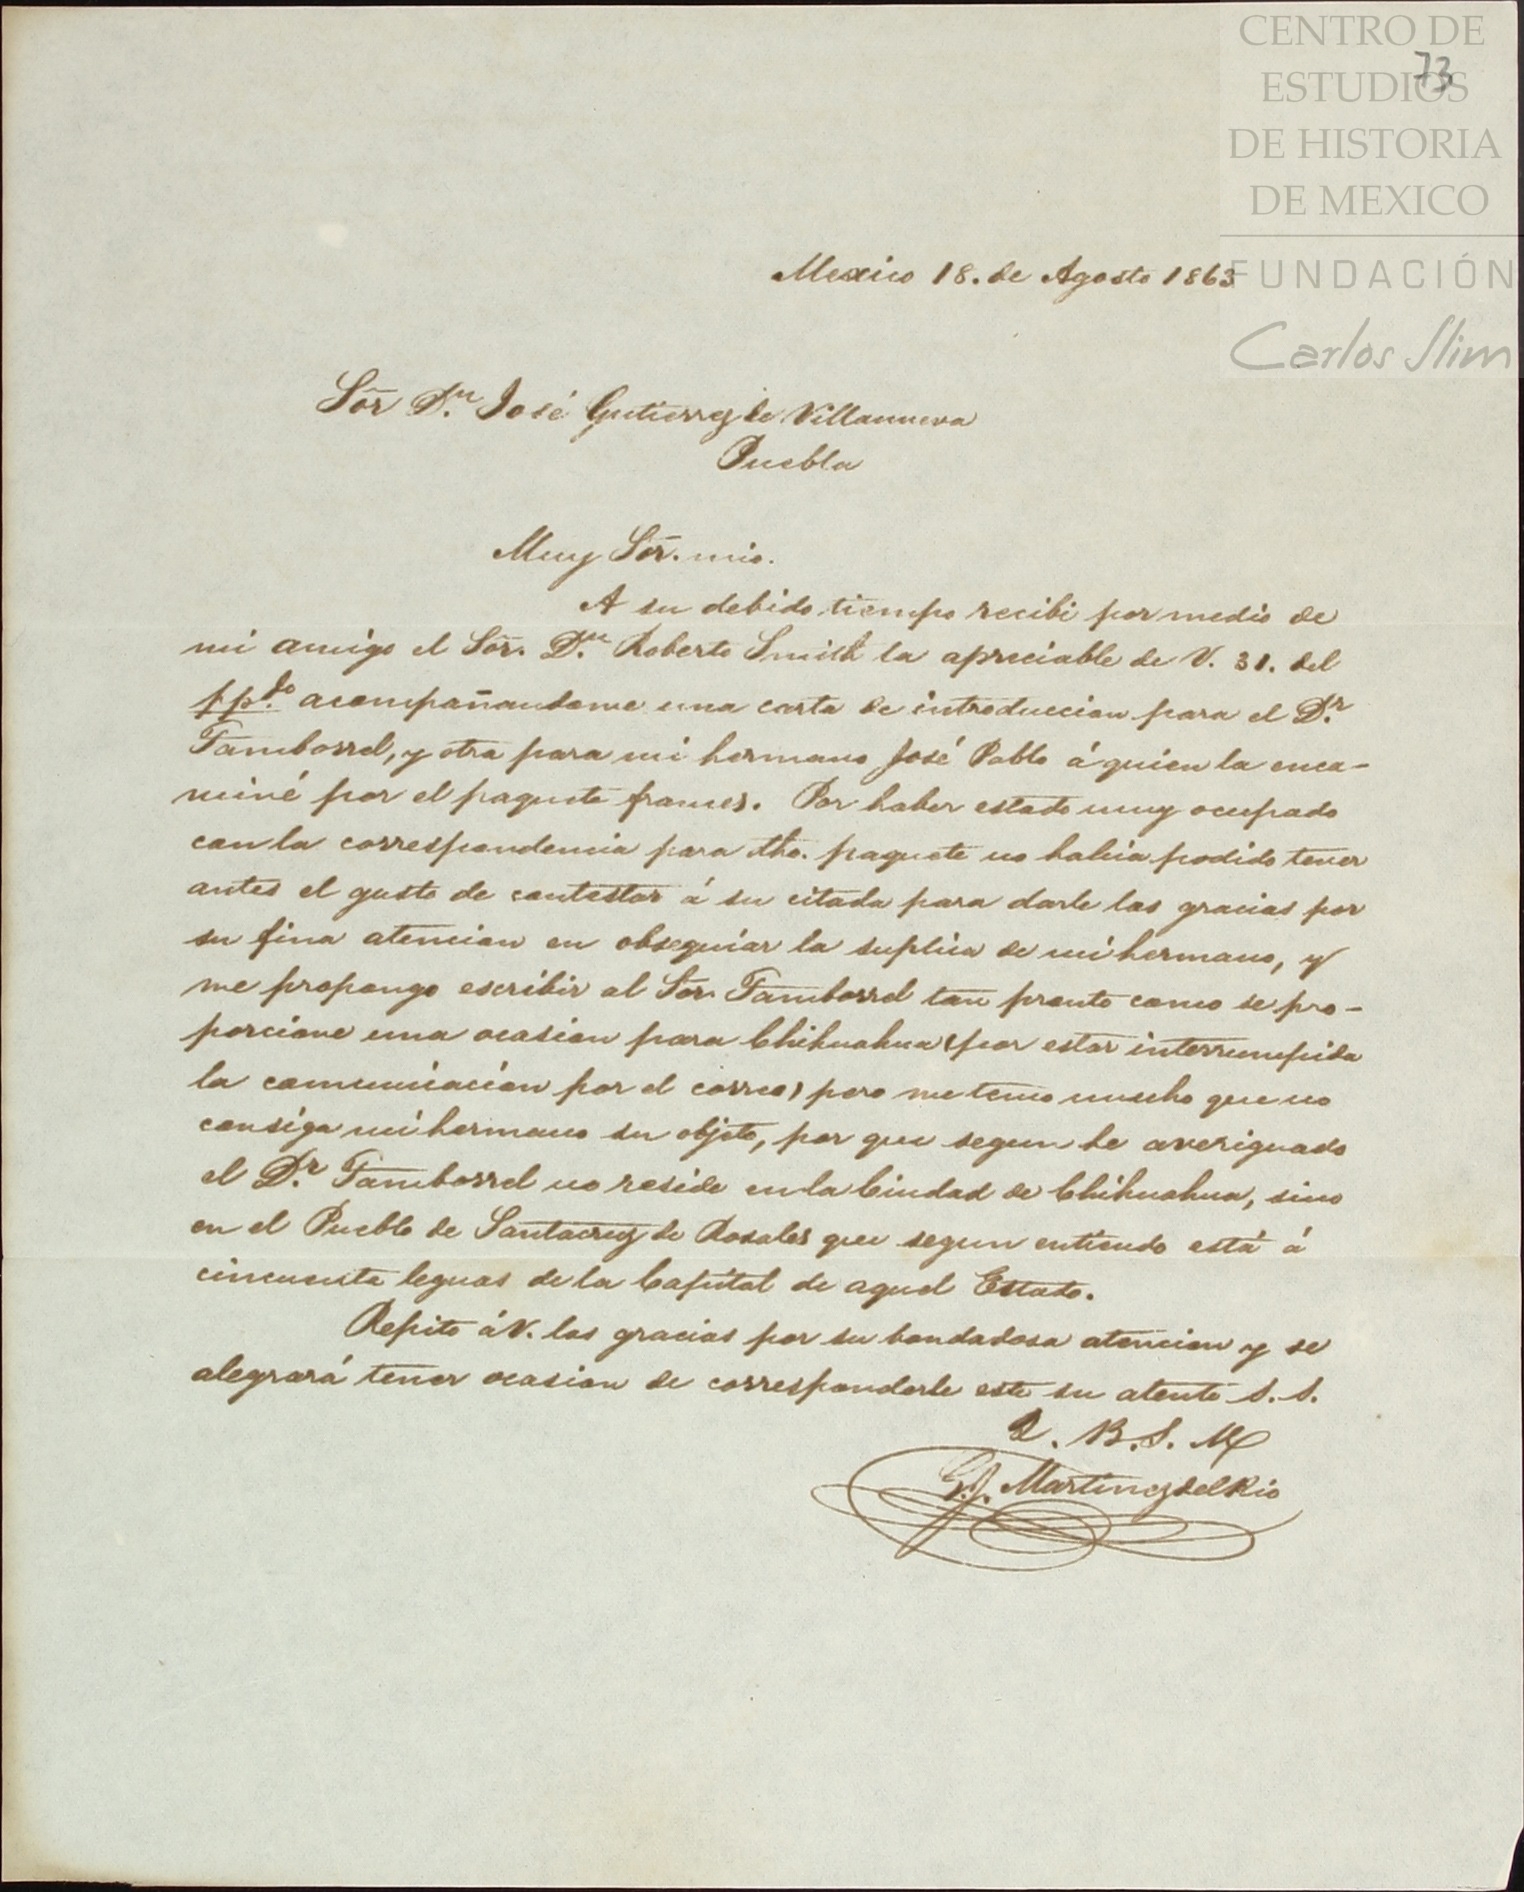 CENTRO DE
ESTUDIOS
DE HISTORIA
DE MEXICO
FUNDACIÓN
Carlos Slim
73
Mexico 18. de Agosto 1863
Sōr D.n José Gutierrez de Villanueva
Puebla
Muy Sōr. mio.
A su debido tiempo recibi por medio de
mi amigo el Sōr. D.n Roberto Smith la apreciable de V. 31. del
ppdo. acompañandome una carta de introduccion para el D.r
Tamborrel, y otra para mi hermano José Pablo á quien la enca-
miné por el paquete frances. Por haber estado muy ocupado
con la correspondencia para dho. paquete no habia podido tener
antes el gusto de contestar á su citada para darle las gracias por
su fina atencion en obsequiar la suplica de mi hermano, y
me propongo escribir al Sōr. Tamborrel tan pronto como se pro-
porcione una ocasion para Chihuahua (por estar interrumpida
la comunicacion por el correo) pero me temo mucho que no
consiga mi hermano su objeto, por que segun he averiguado
el D.r Tamborrel no reside en la Ciudad de Chihuahua, sino
en el Pueblo de Santacruz de Rosales que segun entiendo está á
cincuenta leguas de la Capital de aquel Estado.
Repito á V. las gracias por su bondadosa atencion y se
alegrará tener ocasion de corresponderle este su atento S. S.
Q. B. S. M
G. J. Martinez del Rio